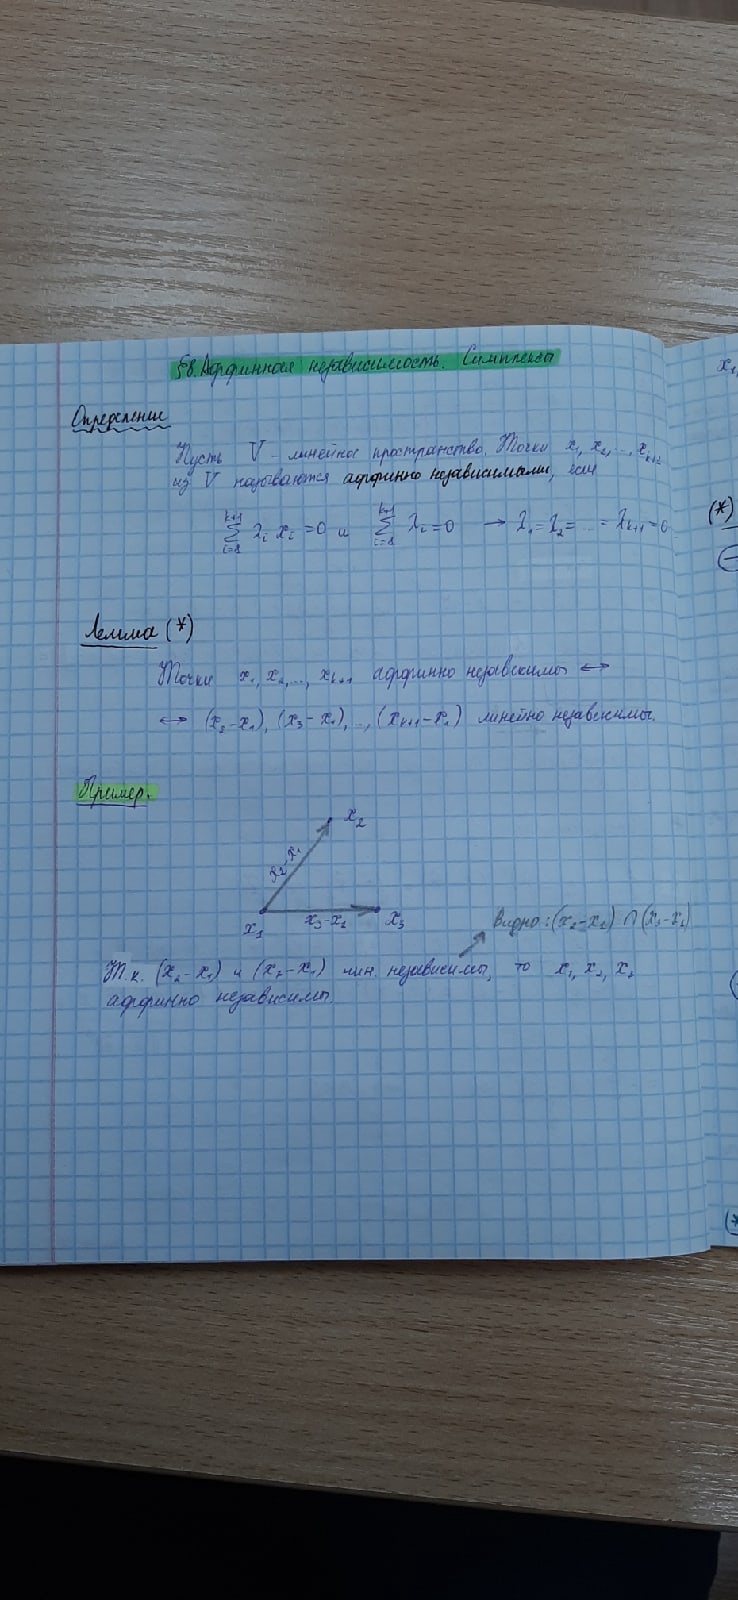 §8. Аффинная независимость. Симплексы
Определение
Пусть V - линейное пространство. Точки x₁, x₂, ..., xₖ₊₁
из V называются аффинно независимыми, если
∑ᵢ₌₁ᵏ⁺¹ λᵢ xᵢ = 0 и ∑ᵢ₌₁ᵏ⁺¹ λᵢ = 0 → λ₁ = λ₂ = ... = λₖ₊₁ = 0
Лемма (*)
Точки x₁, x₂, ..., xₖ₊₁ аффинно независимы ↔
↔ (x₂ - x₁), (x₃ - x₁), ..., (xₖ₊₁ - x₁) линейно независимы.
Пример.
x₂
x₂ - x₁
x₁ x₃ - x₁ x₃
Видно: (x₂ - x₁) ∩ (x₃ - x₁)
Т.к. (x₂ - x₁) и (x₃ - x₁) лин. независимы, то x₁, x₂, x₃
аффинно независимы.
(*)